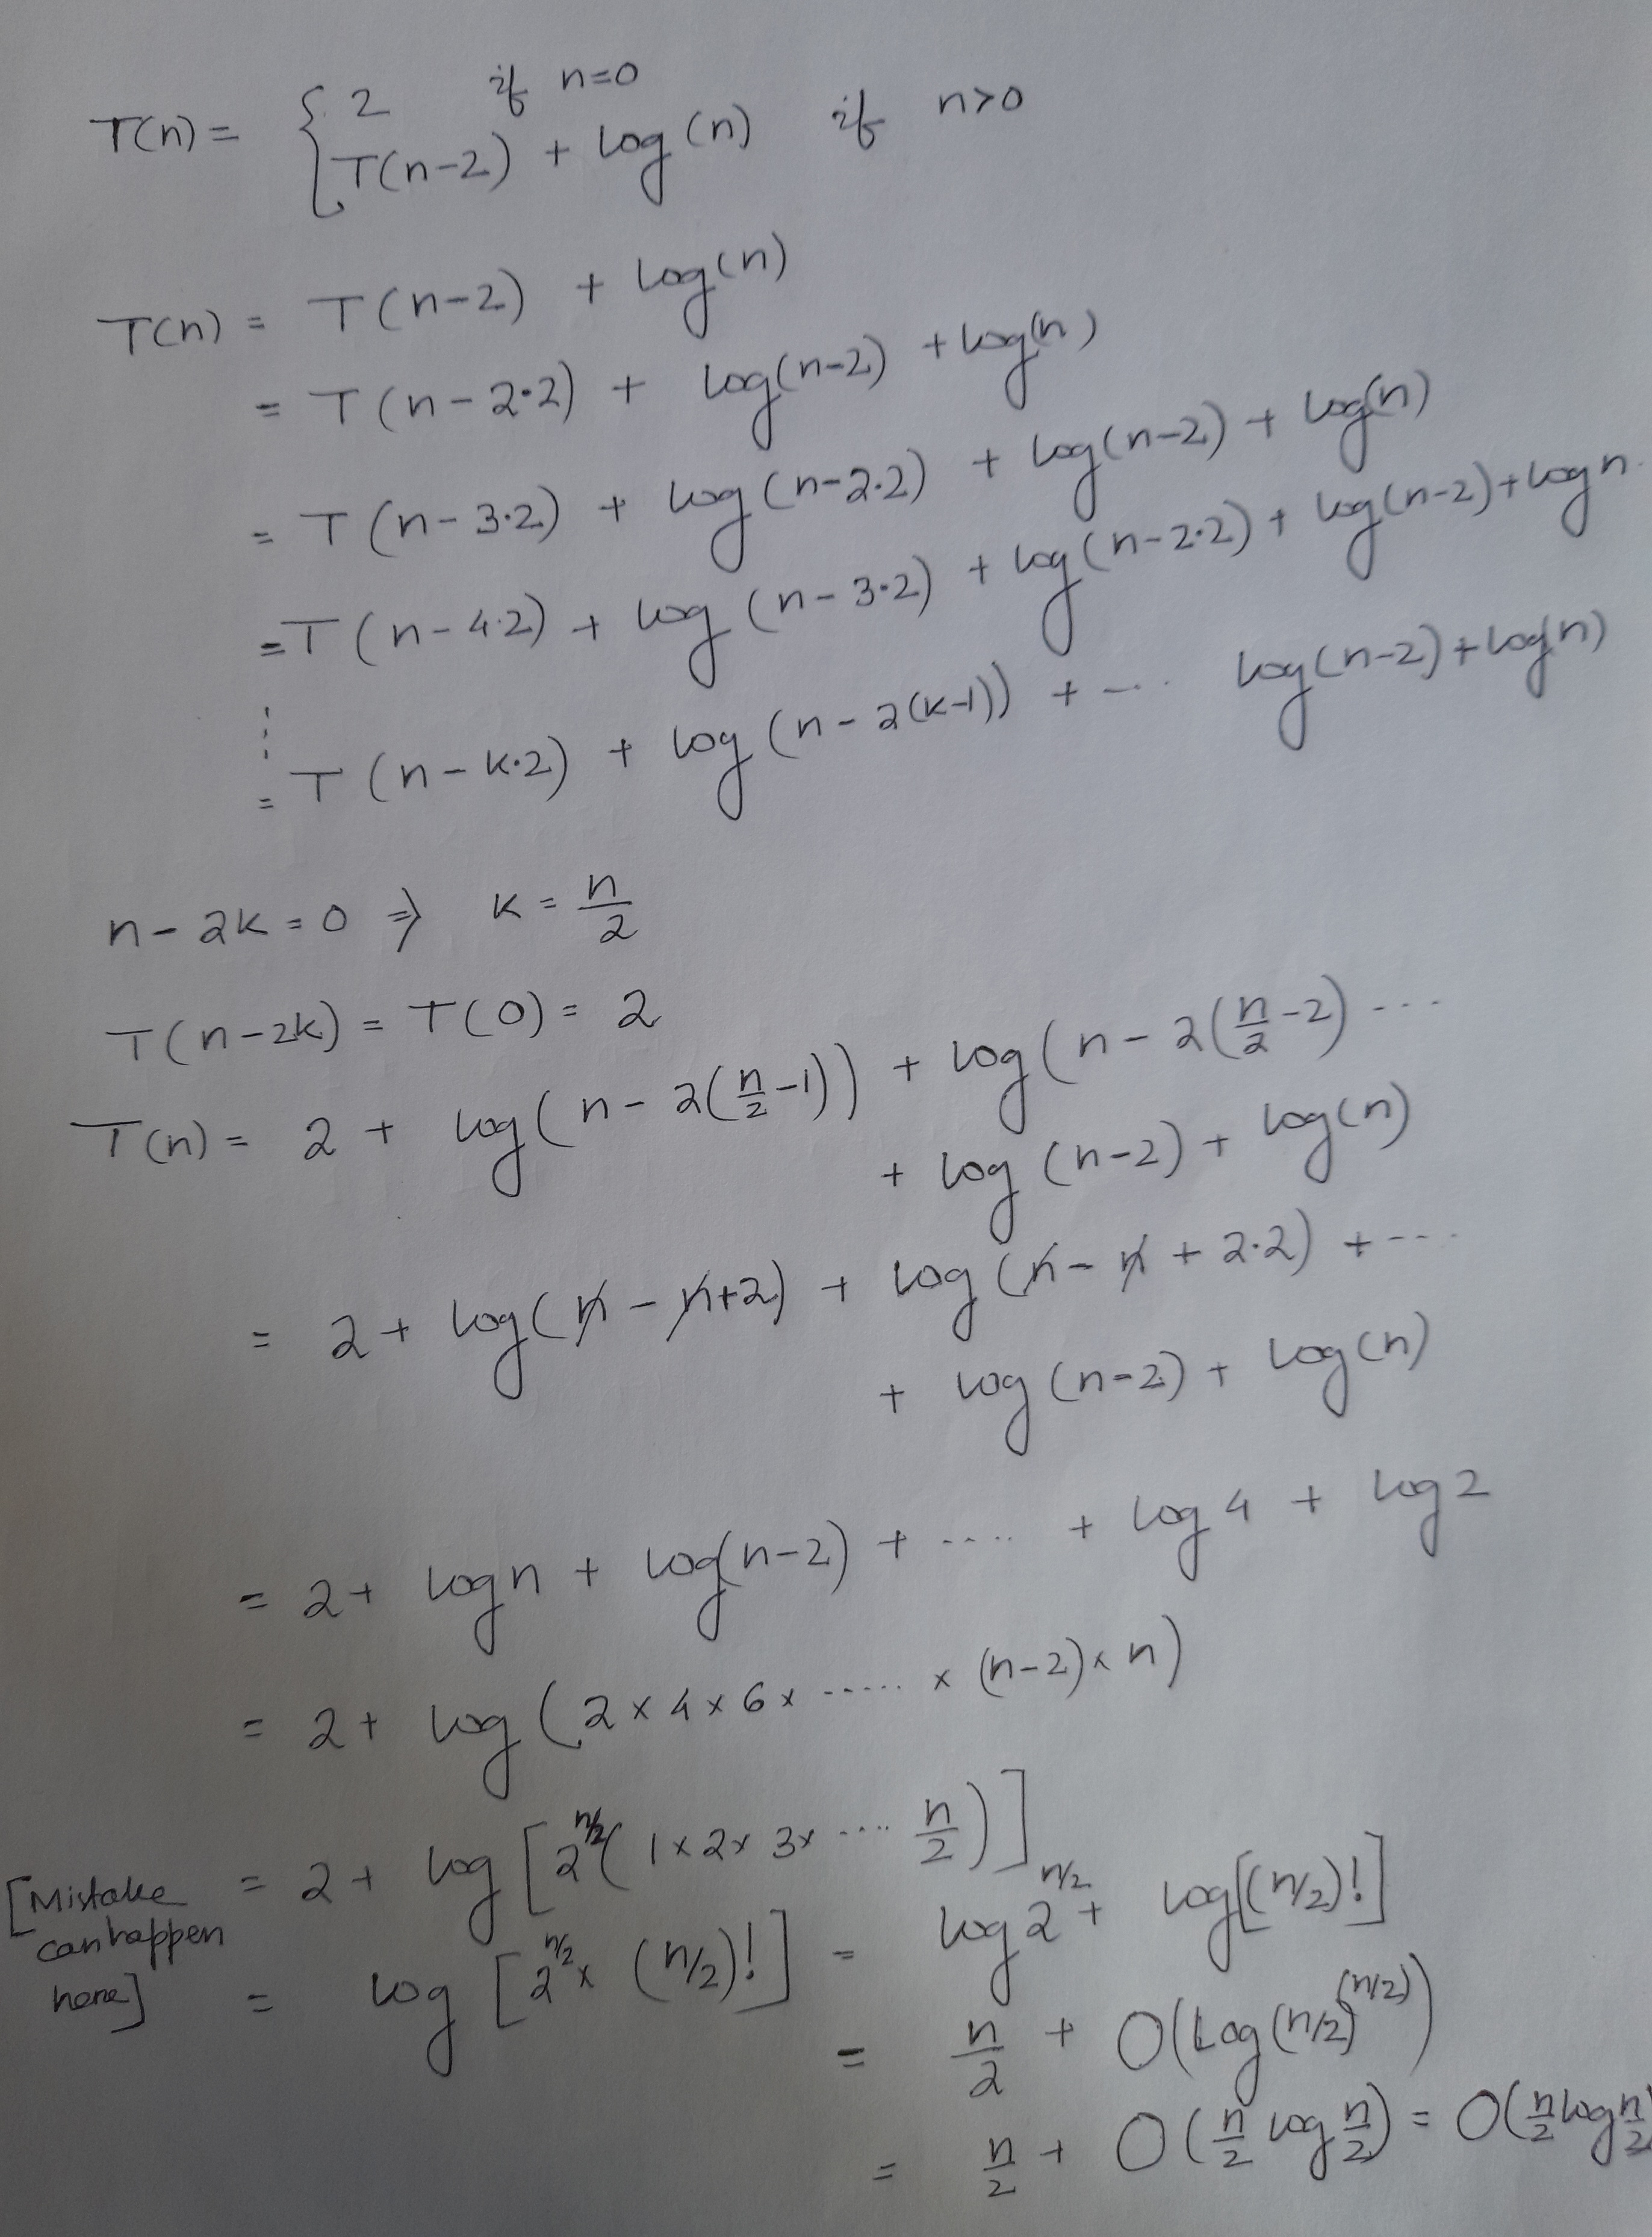 T(n) = { 2 if n=0
T(n-2) + log(n) if n>0
T(n) = T(n-2) + log(n)
= T(n-2·2) + log(n-2) + log(n)
= T(n-3·2) + log(n-2·2) + log(n-2) + log(n)
= T(n-4·2) + log(n-3·2) + log(n-2·2) + log(n-2) + log n
⋮
= T(n-k·2) + log(n-2(k-1)) + ... log(n-2) + log(n)
n-2k = 0 ⇒ k = n/2
T(n-2k) = T(0) = 2
T(n) = 2 + log(n-2(n/2-1)) + log(n-2(n/2-2) ...
+ log(n-2) + log(n)
= 2 + log(n-n+2) + log(n-n+2·2) + ...
+ log(n-2) + log(n)
= 2 + log n + log(n-2) + .... + log 4 + log 2
= 2 + log(2×4×6×.....×(n-2)×n)
= 2 + log[2^n/2(1×2×3×.... n/2)]
[Mistake can happen here]
= log[2^n/2 × (n/2)!] = log 2^n/2 + log[(n/2)!]
= n/2 + O(Log(n/2)^(n/2))
= n/2 + O(n/2 log n/2) = O(n/2 log n/2)